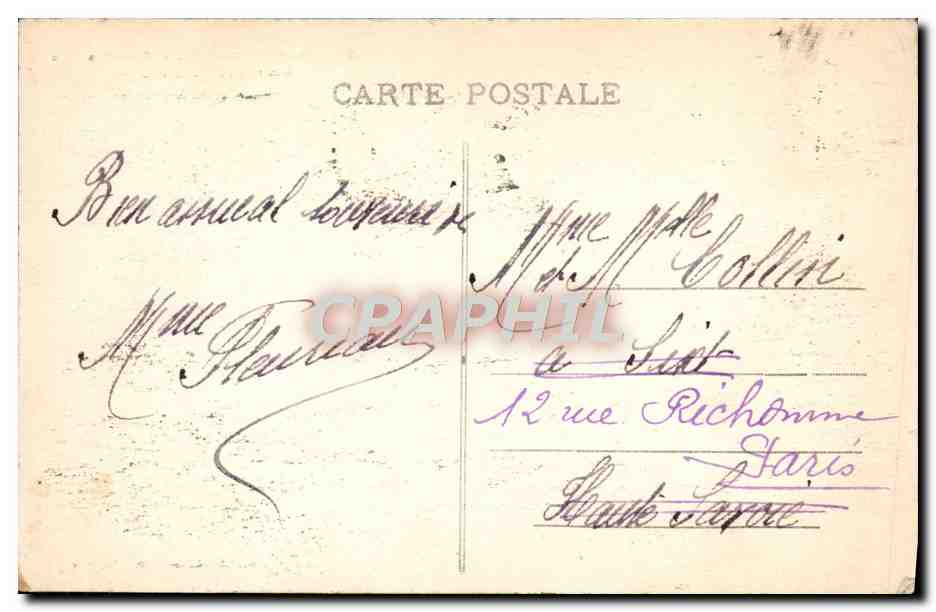 CARTE POSTALE
Bien amical souvenir
Mme
Mme Mlle
M et M Collin
CPAPHIL
à Sixt
12 rue Richomme
Paris
Haute Savoie